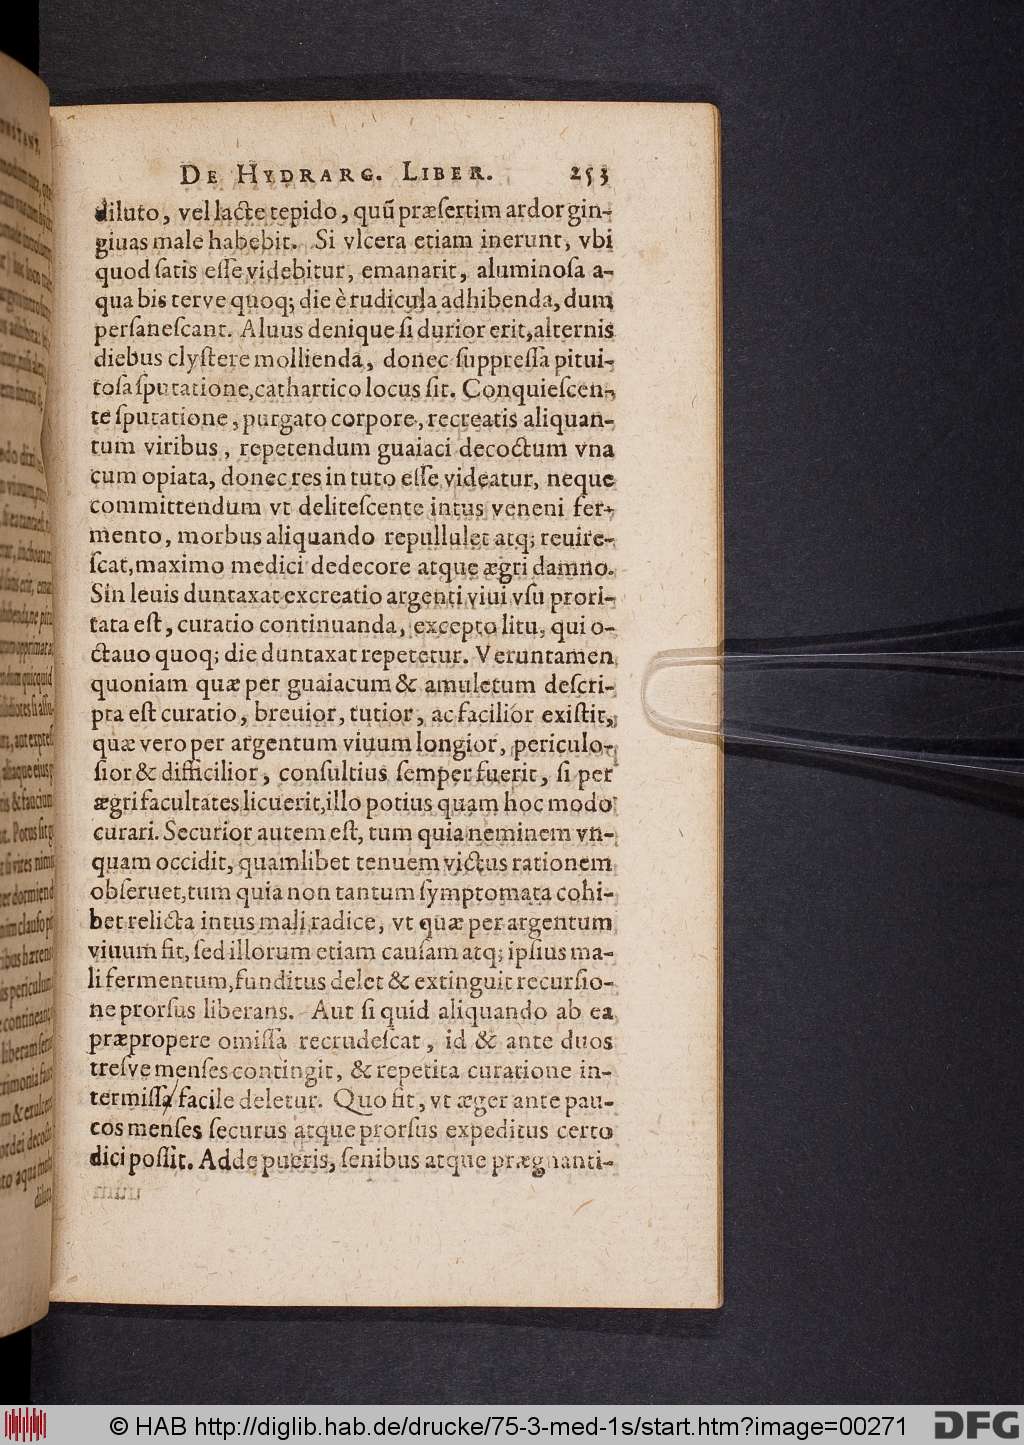 DE HYDRARG. LIBER. 253
diluto, vel lacte tepido, quū præſertim ardor gin-
giuas male habebit. Si vlcera etiam inerunt, vbi
quod ſatis eſſe videbitur, emanarit, aluminoſa a-
qua bis terve quoq; die è rudicula adhibenda, dum
perſaneſcant. Aluus denique ſi durior erit, alternis
diebus clyſtere mollienda, donec ſuppreſſa pitui-
toſa ſputatione, cathartico locus ſit. Conquieſcen-
te ſputatione, purgato corpore, recreatis aliquan-
tum viribus, repetendum guaiaci decoctum vna
cum opiata, donec res in tuto eſſe videatur, neque
committendum vt deliteſcente intus veneni fer-
mento, morbus aliquando repullulet atq; reuire-
ſcat, maximo medici dedecore atque ægri damno.
Sin leuis duntaxat excreatio argenti viui vſu prori-
tata eſt, curatio continuanda, excepto litu, qui o-
ctauo quoq; die duntaxat repetetur. Veruntamen
quoniam quæ per guaiacum & amuletum deſcri-
pta eſt curatio, breuior, tutior, ac facilior exiſtit,
quæ vero per argentum viuum longior, periculo-
ſior & difficilior, conſultius ſemper fuerit, ſi per
ægri facultates licuerit, illo potius quam hoc modo
curari. Securior autem eſt, tum quia neminem vn-
quam occidit, quamlibet tenuem victus rationem
obſeruet, tum quia non tantum ſymptomata cohi-
bet relicta intus mali radice, vt quæ per argentum
viuum fit, ſed illorum etiam cauſam atq; ipſius ma-
li fermentum, funditus delet & extinguit recurſio-
ne prorſus liberans. Aut ſi quid aliquando ab ea
præpropere omiſſa recrudeſcat, id & ante duos
treſve menſes contingit, & repetita curatione in-
termiſſa/ facile deletur. Quo fit, vt æger ante pau-
cos menſes ſecurus atque prorſus expeditus certo
dici poſſit. Adde pueris, ſenibus atque prægnanti-
© HAB http://diglib.hab.de/drucke/75-3-med-1s/start.htm?image=00271
DFG